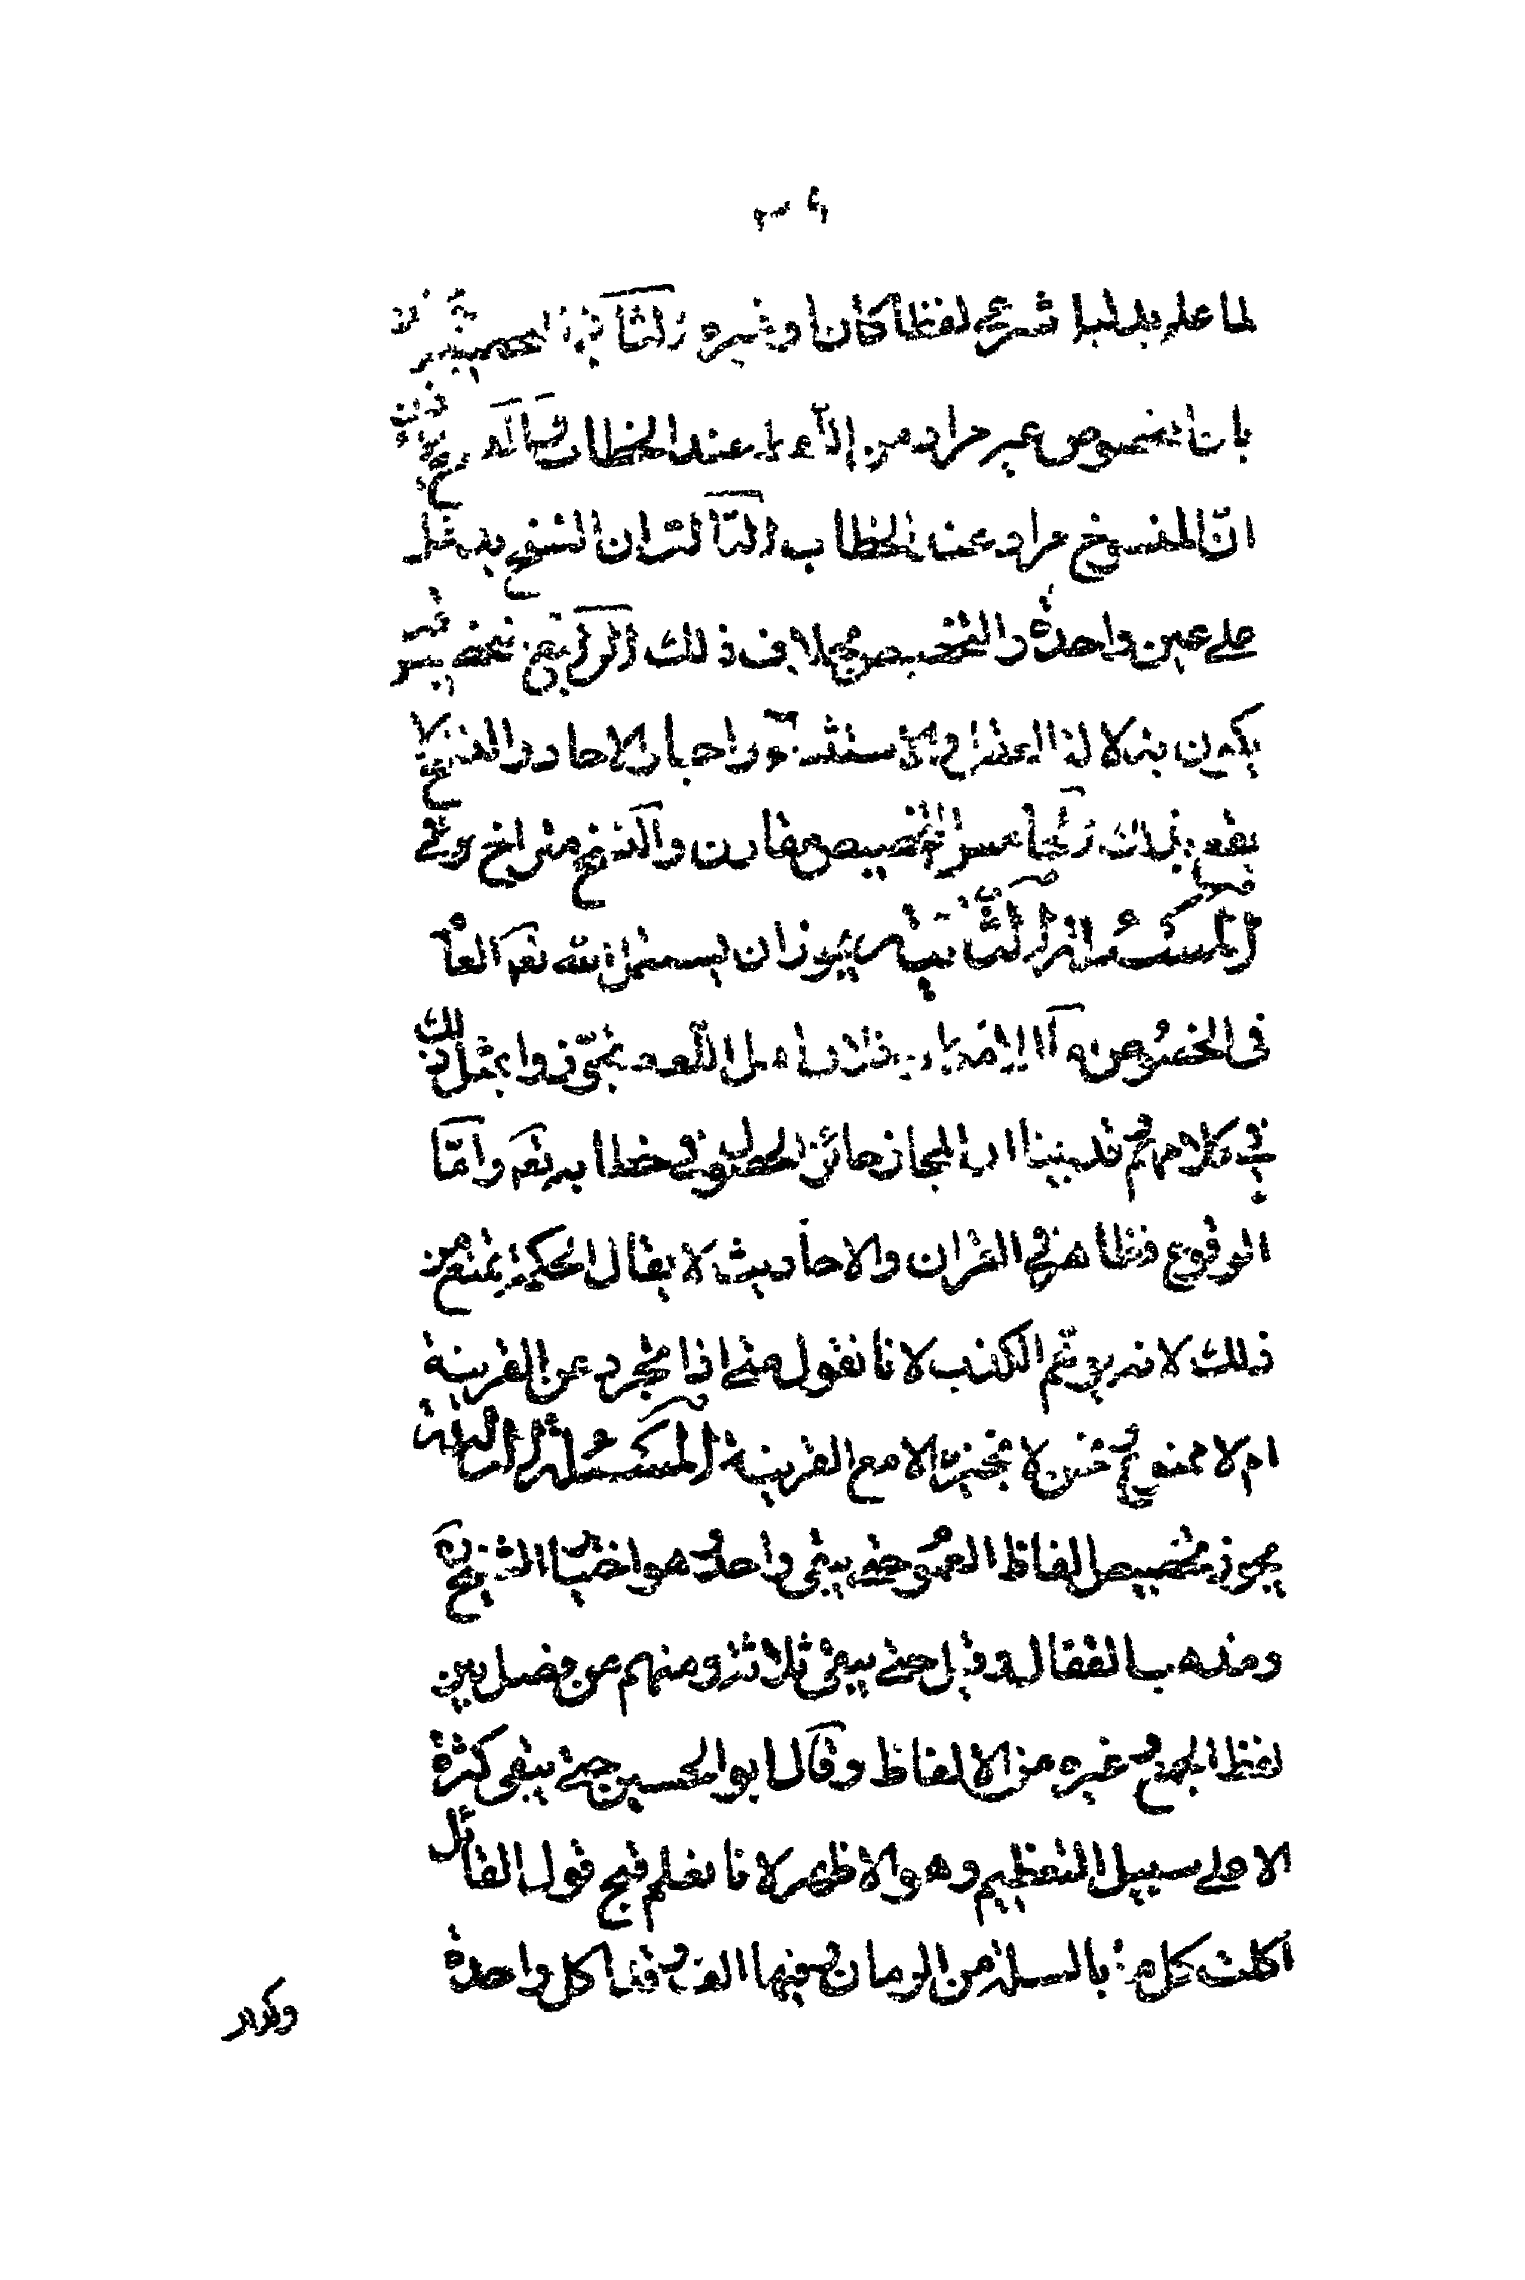 لما علم بدليل شرعى لفظا كان او غيره الثانى التخصيص
بان المخصوص غير مراد من اللفظ عند الخطاب
ان المنسوخ مراد عند الخطاب الثالث ان النسخ يدخل
على عين واحدة والتخصيص بخلاف ذلك الرابع
واخبار الاحاد والنسخ لا
يقع بذلك الخامس التخصيص مقارن والنسخ متراخ
المسئلة الثانية يجوز ان يستعمل الله تعه العام
فى الخصوص اهل اللغة تجوزوا بمثل ذلك
فى كلامهم وقد بينا ان المجاز جائز الحصول فى خطابه تعه واما
الوقوع فظاهر فى القران والاحاديث لا يقال الحكمة تمنع من
ذلك لانه يوهم الكذب لانا نقول متى اذا تجرد عن القرينة
ام لا ممنوع نحن لا نجيزه الا مع القرينة المسئلة الثالثة
يجوز تخصيص الفاظ العموم حتى يبقى واحد وهو اختيار الشيخ
ومذهب القفال وقيل حتى يبقى ثلاثة ومنهم من فصل بين
لفظ الجمع وغيره من الالفاظ وقال ابو الحسين حتى يبقى كثرة
الا على سبيل التعظيم وهو الاظهر لانا نعلم قبح قول القائل
اكلت كل ما بالسلة من الرمان وفيها الف وقد اكل واحدة